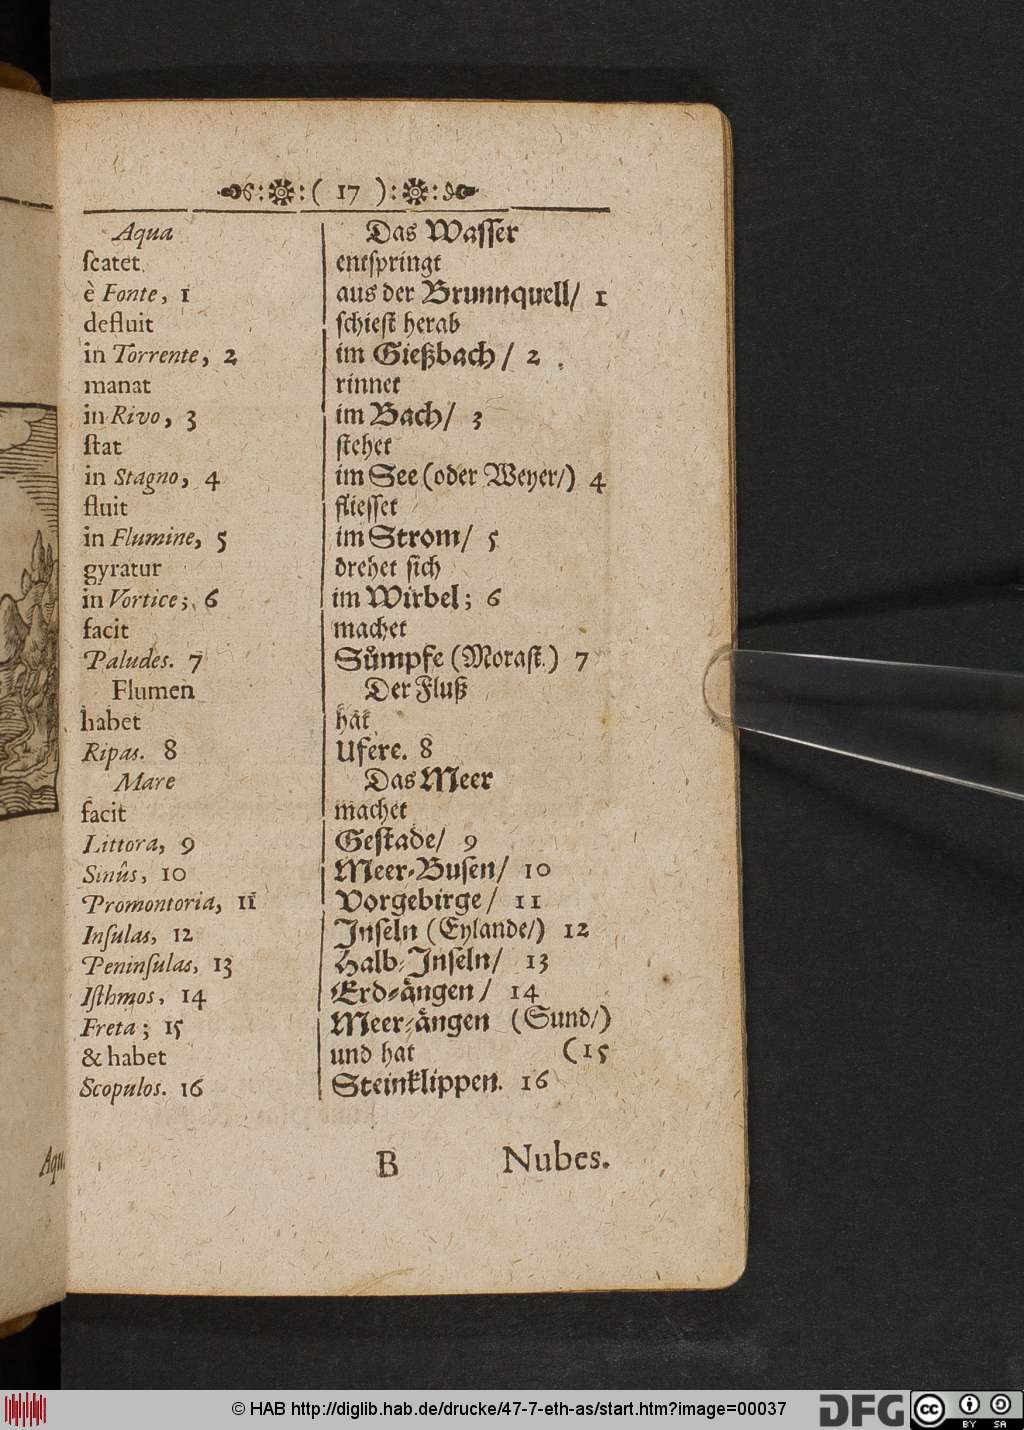 :( 17 ):
Aqua
ſcatet
è Fonte, 1
defluit
in Torrente, 2
manat
in Rivo, 3
ſtat
in Stagno, 4
fluit
in Flumine, 5
gyratur
in Vortice; 6
facit
Paludes. 7
Flumen
habet
Ripas. 8
Mare
facit
Littora, 9
Sinûs, 10
Promontoria, 11
Inſulas, 12
Peninſulas, 13
Iſthmos, 14
Freta; 15
& habet
Scopulos. 16
Das Waſſer
entſpringt
aus der Brunnquell/ 1
ſchieſt herab
im Gießbach/ 2
rinnet
im Bach/ 3
ſtehet
im See (oder Weyer/) 4
flieſſet
im Strom/ 5
drehet ſich
im Wirbel; 6
machet
Suͤmpfe (Moraſt.) 7
Der Fluß
hat
Ufere. 8
Das Meer
machet
Geſtade/ 9
Meer-Buſen/ 10
Vorgebirge/ 11
Inſeln (Eylande/) 12
Halb-Inſeln/ 13
Erd-aͤngen/ 14
Meer-aͤngen (Sund/)
und hat (15
Steinklippen. 16
B Nubes.
Aqu
© HAB http://diglib.hab.de/drucke/47-7-eth-as/start.htm?image=00037
DFG
cc BY SA